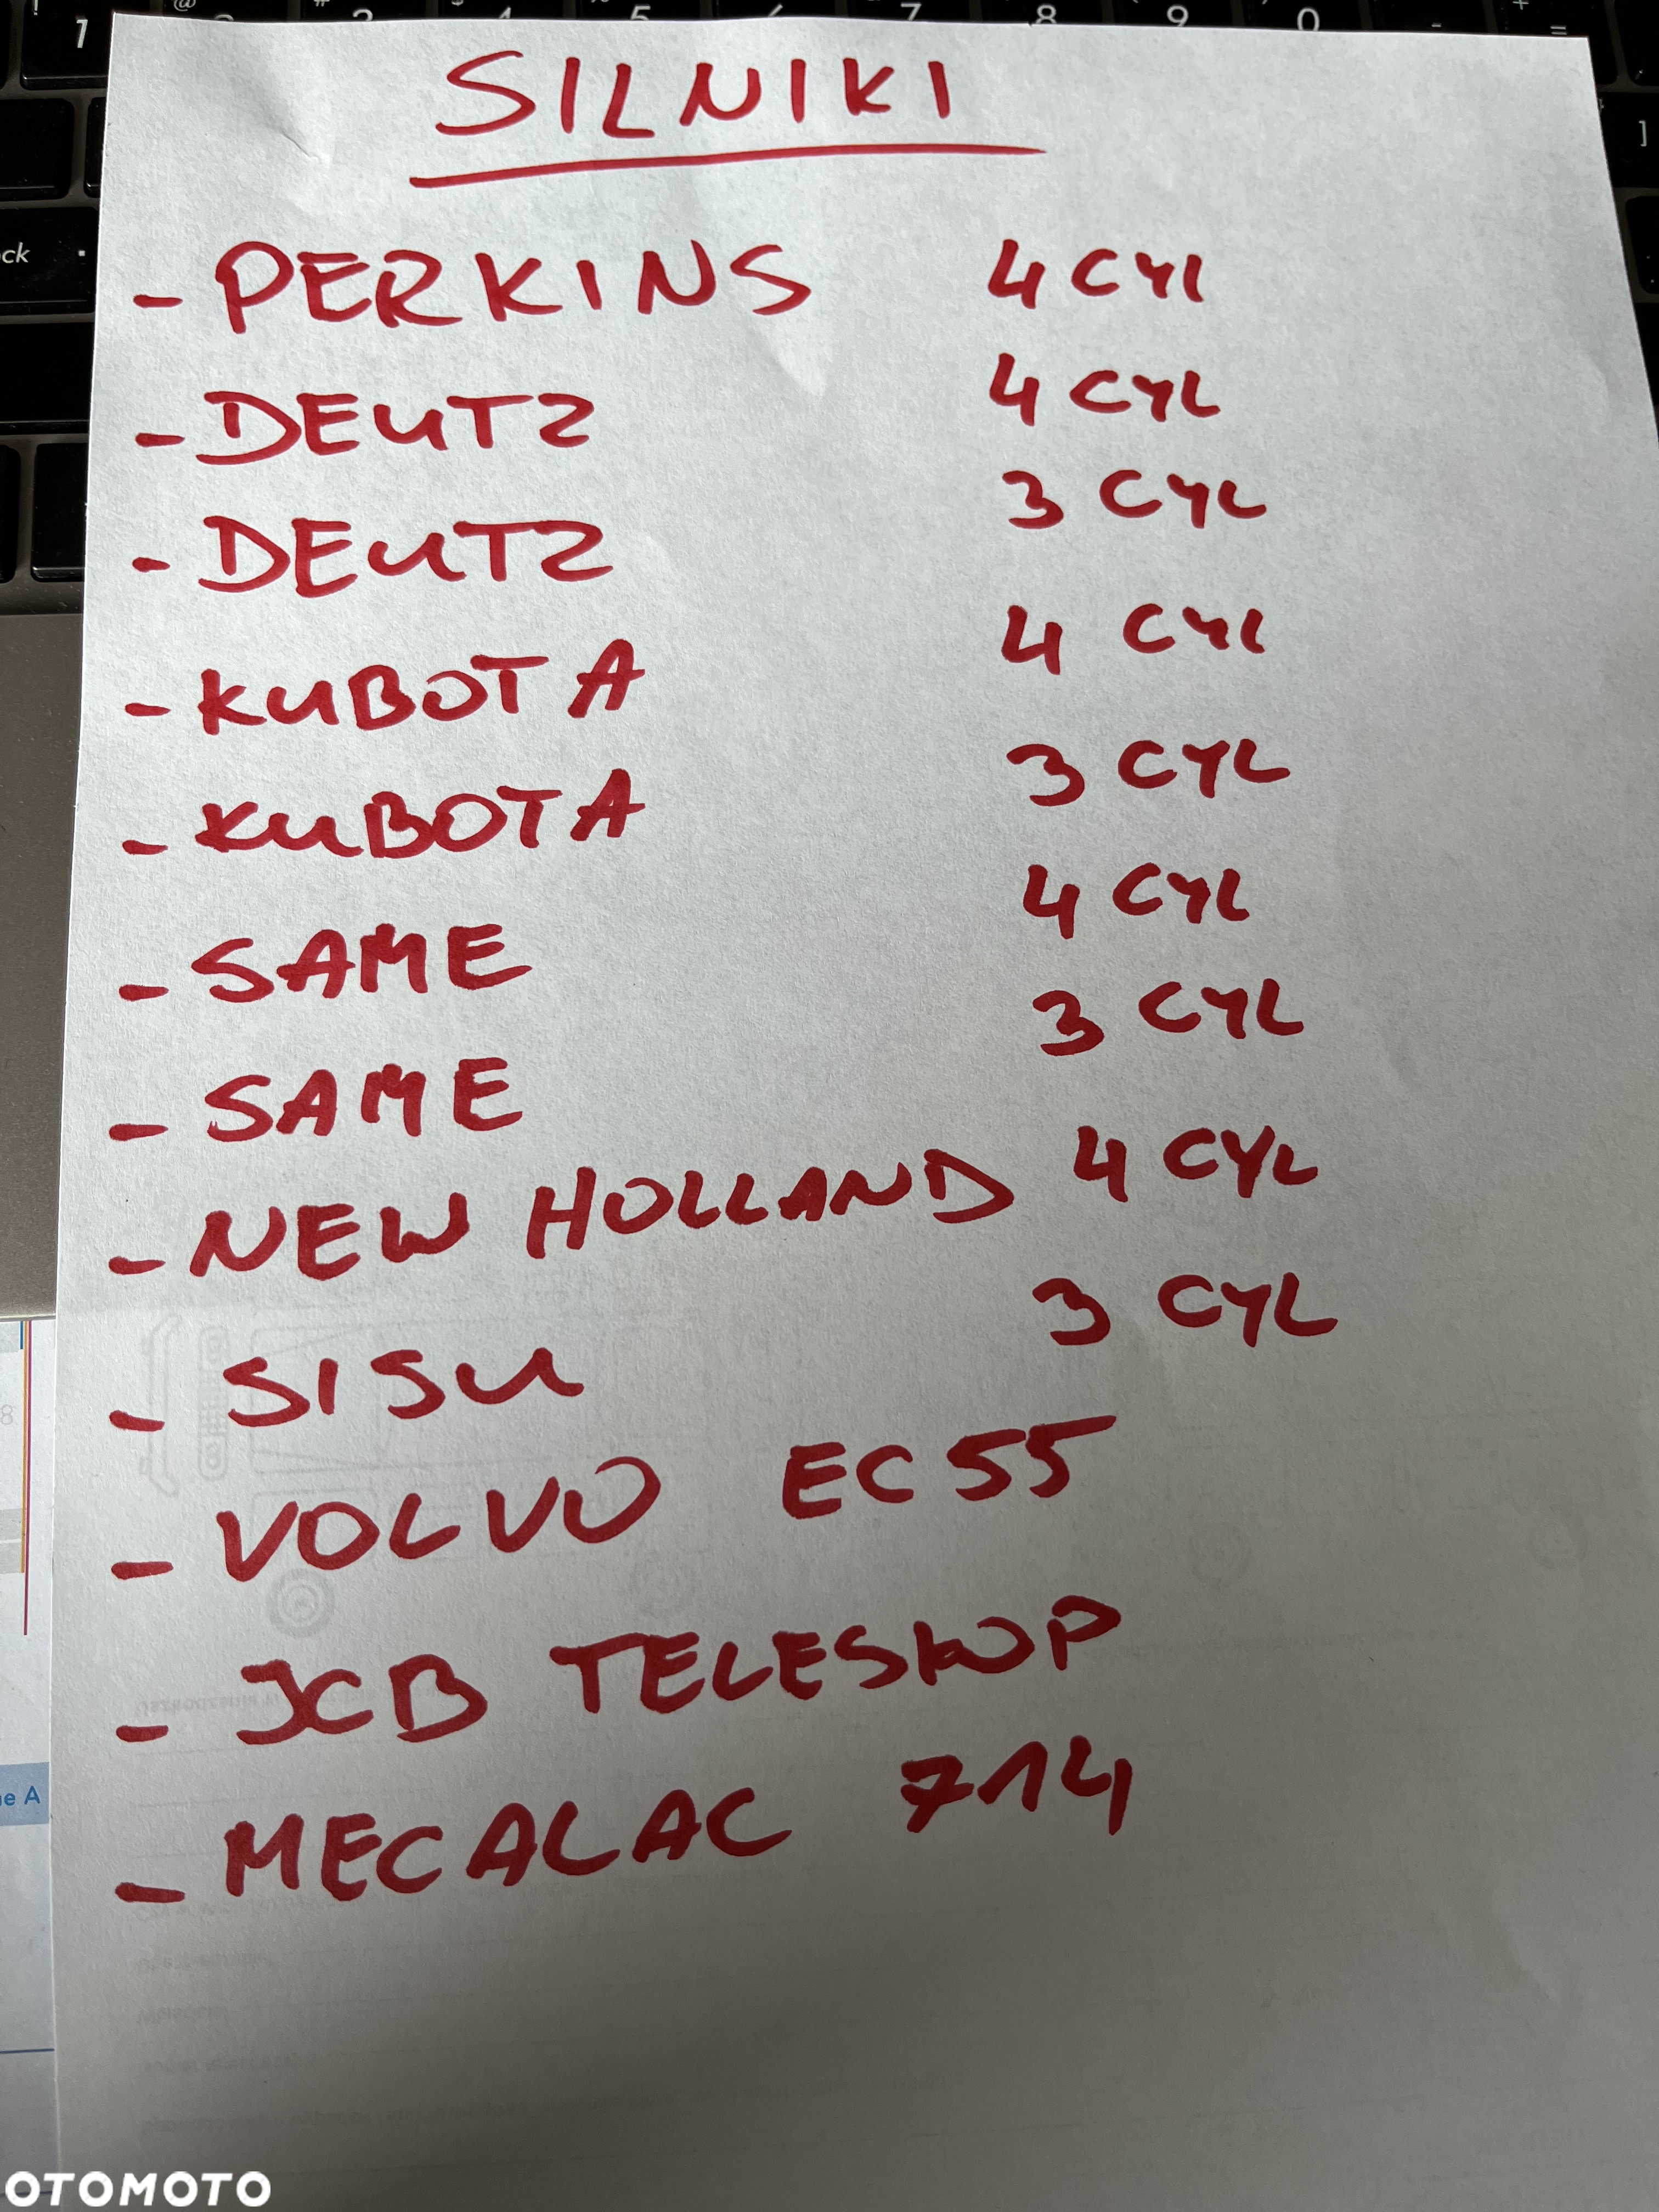 SILNIKI
- PERKINS 4 CYL
- DEUTZ 4 CYL
- DEUTZ 3 CYL
- KUBOTA 4 CYL
- KUBOTA 3 CYL
- SAME 4 CYL
- SAME 3 CYL
- NEW HOLLAND 4 CYL
- SISU 3 CYL
- VOLVO EC55
- JCB TELESKOP
- MECALAC 714
OTOMOTO